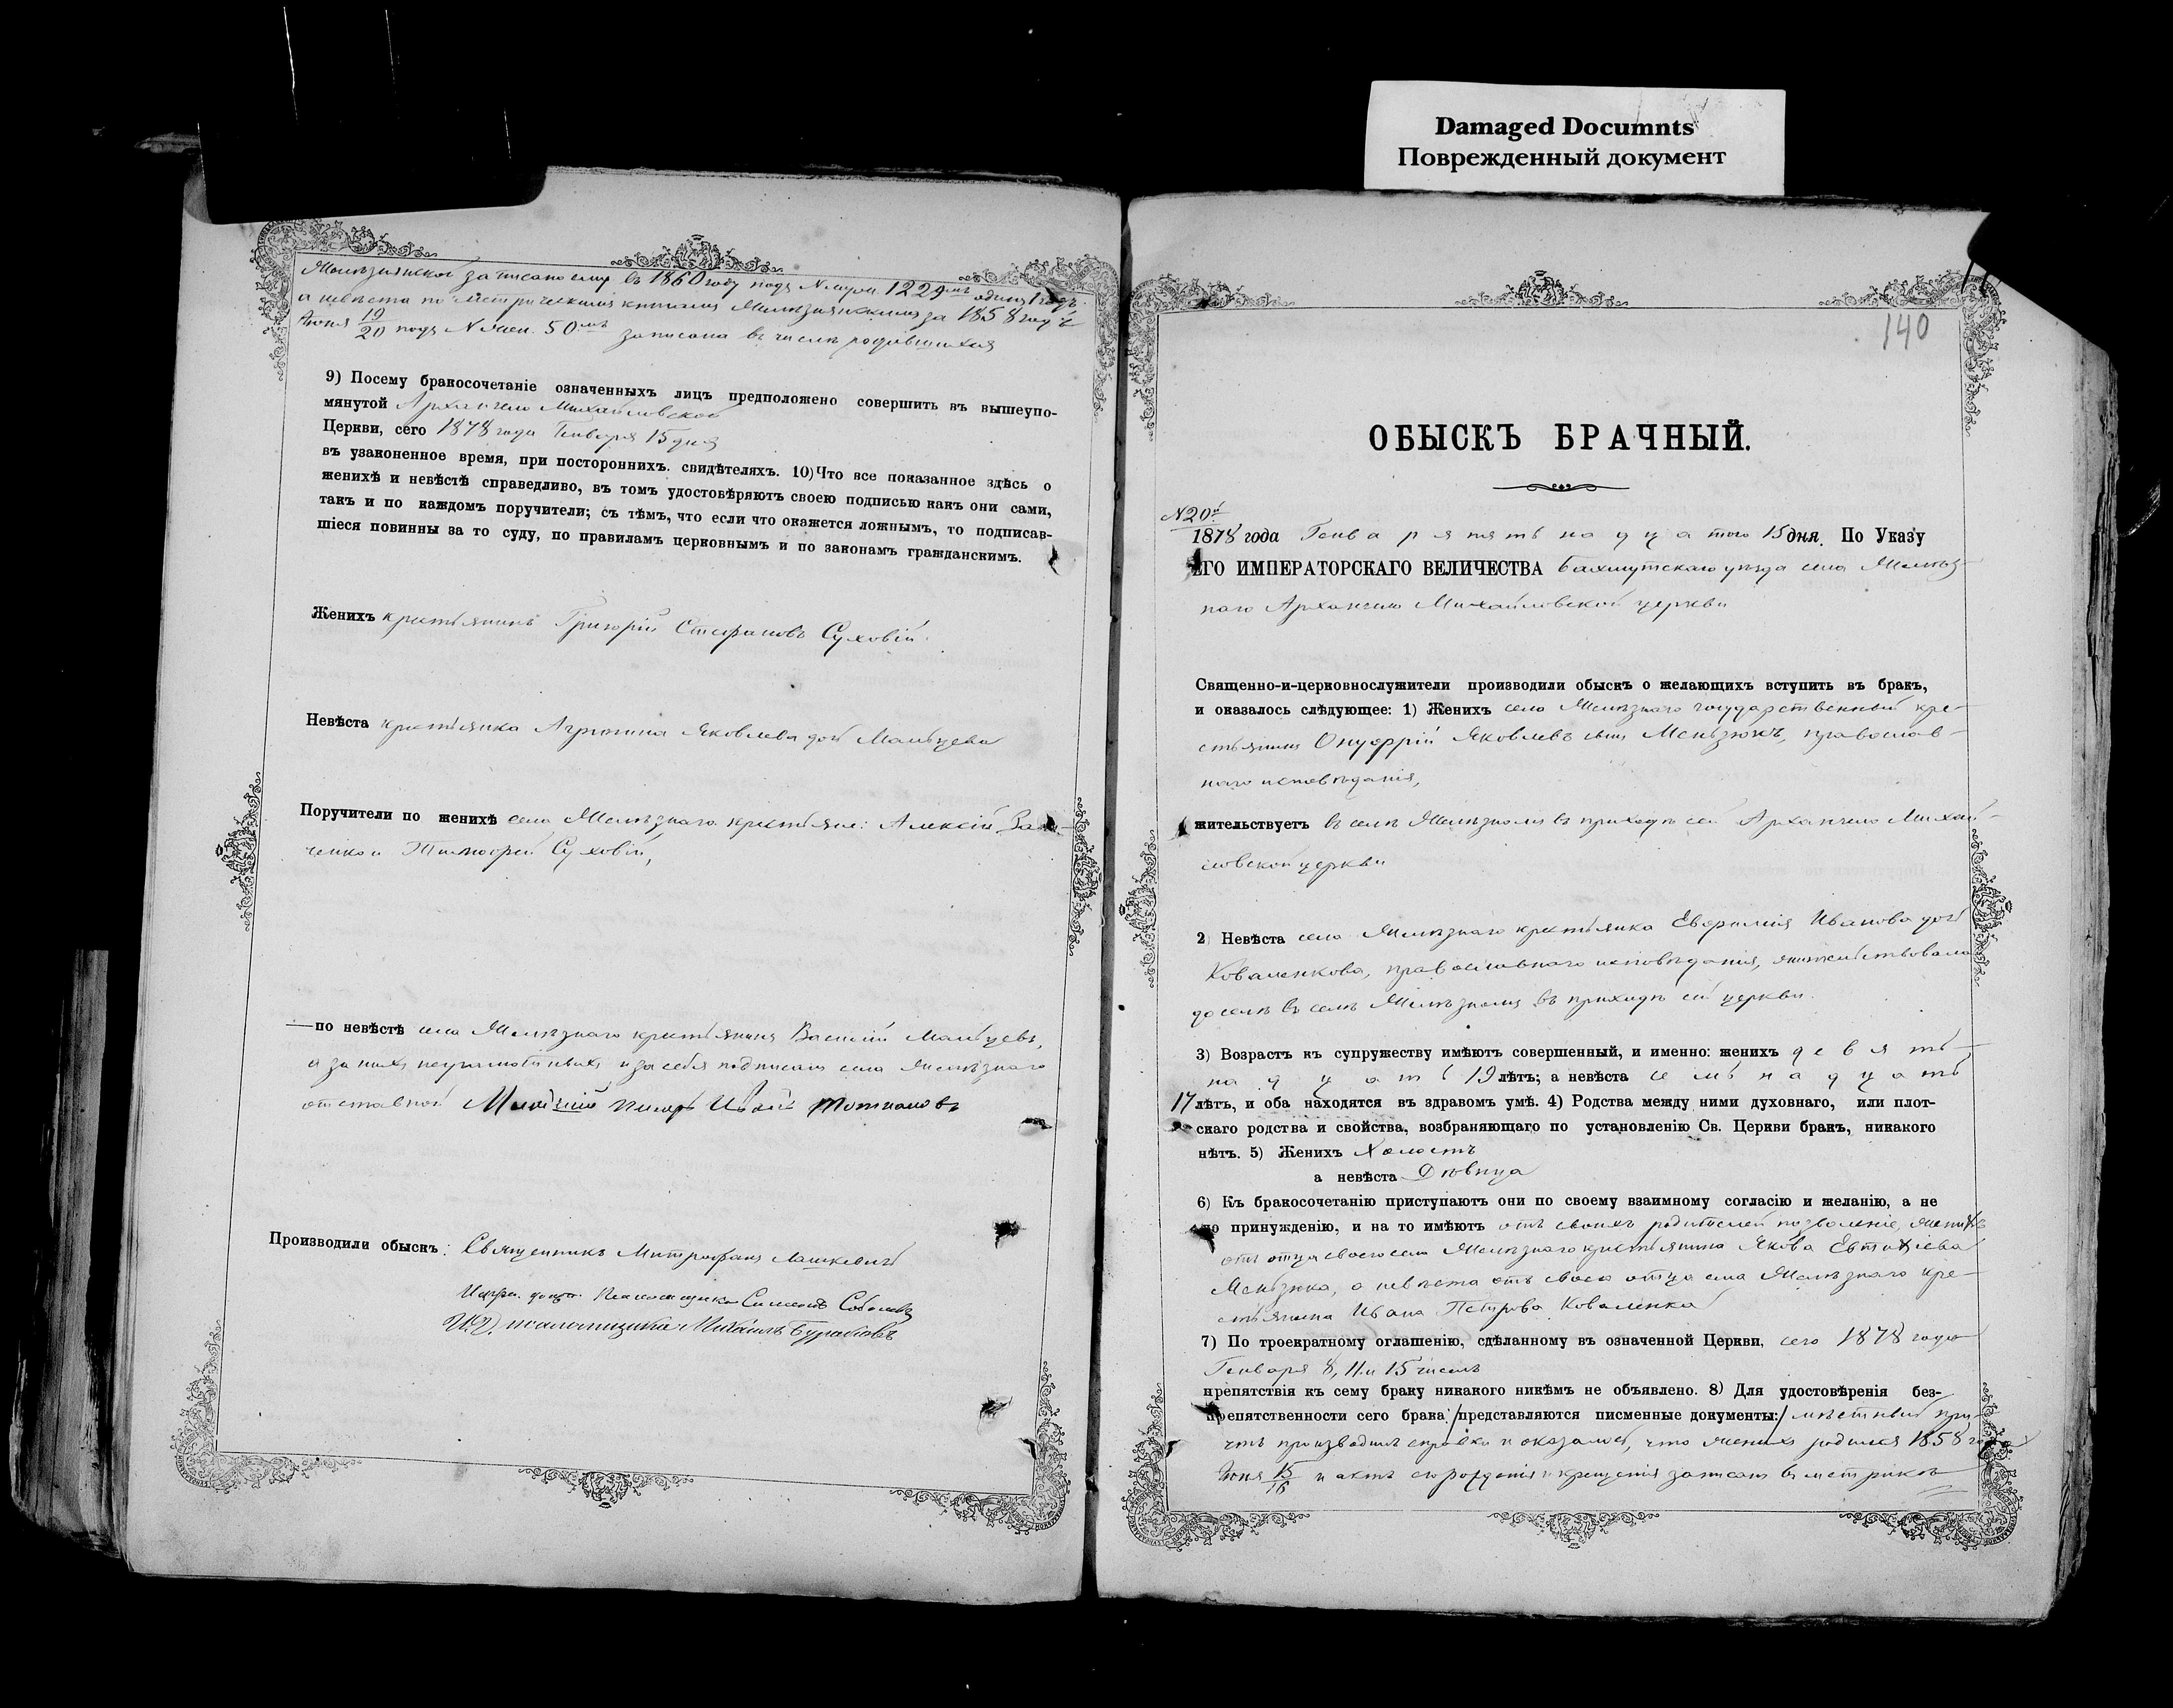 Damaged Documnts
Поврежденный документ
записано ему въ 1860 году подъ № муж. 1229мъ одинъ годъ
а невѣста по метрическимъ книгамъ за 1858 годъ
19/20 подъ № жен. 50мъ записана въ числѣ родившихся
9) Посему бракосочетаніе означенныхъ лицъ предположено совершить въ вышеупо-
мянутой Архангело Михайловской
Церкви, сего 1878 года Генваря 15 дня
въ узаконенное время, при постороннихъ. свидѣтеляхъ. 10) Что все показанное здѣсь о
женихѣ и невѣстѣ справедливо, въ томъ удостовѣряютъ своею подписью какъ они сами,
такъ и по каждомъ поручители; съ тѣмъ, что если что окажется ложнымъ, то подписав-
шіеся повинны за то суду, по правиламъ церковнымъ и по законамъ гражданскимъ.
Женихъ крестьянинъ Григорій Стефановъ Суховій.
Невѣста крестьянка Агрипина Яковлева дочь Мальцева
Поручители по женихѣ села Желѣзнаго крестьяне: Алексій
ченко и Тимофей Суховій,
—по невѣстѣ села Желѣзнаго крестьянинъ Василій Мальцевъ,
а за нихъ неграмотныхъ и за себя подписалъ села Желѣзнаго
отставной Младшій писарь Иванъ
Производили обыскъ: Священникъ Митрофанъ Лашкевичъ
Псаломщика Симеонъ Соболевъ
И. Д. псаломщика Михаилъ
140
ОБЫСКЪ БРАЧНЫЙ.
№ 20й
1878 года Генваря пятнадцатого 15 дня. По Указу
ЕГО ИМПЕРАТОРСКАГО ВЕЛИЧЕСТВА Бахмутскаго уѣзда села Желѣз-
наго Архангело Михайловской церкви
Священно-и-церковнослужители производили обыскъ о желающихъ вступить въ бракъ,
и оказалось слѣдующее: 1) Женихъ села Желѣзнаго государственный кре-
стьянинъ Онуфрій Яковлевъ сынъ Меньзюкъ, православ-
наго исповѣданія,
жительствуетъ въ селѣ Желѣзномъ въ приходѣ сей Архангело Михай-
ловской церкви
2) Невѣста села Желѣзнаго крестьянка Евфимія Иванова дочь
Коваленкова, православнаго исповѣданія, жительствовала
доселѣ въ селѣ Желѣзномъ въ приходѣ сей церкви.
3) Возрастъ къ супружеству имѣютъ совершенный, и именно: женихъ девять-
надцать 19 лѣтъ; а невѣста семьнадцать
17 лѣтъ, и оба находятся въ здравомъ умѣ. 4) Родства между ними духовнаго, или плот-
скаго родства и свойства, возбраняющаго по установленію Св. Церкви бракъ, никакого
нѣтъ. 5) Женихъ Холостъ
а невѣста Дѣвица
6) Къ бракосочетанію приступаютъ они по своему взаимному согласію и желанію, а не
по принужденію, и на то имѣютъ отъ своихъ родителей позволеніе, женихъ
отъ отца своего села Желѣзнаго крестьянина Якова Евтихіева
Меньзюка, а невѣста отъ своего отца села Желѣзнаго кре-
стьянина Ивана Петрова Коваленка
7) По троекратному оглашенію, сдѣланному въ означенной Церкви, сего 1878 года
Генваря 8, 11 и 15 чиселъ
препятствія къ сему браку никакого никѣмъ не объявлено. 8) Для удостовѣренія без-
препятственности сего брака /представляются писменные документы:/ мѣстный при-
чтъ производилъ справки и оказалось, что женихъ родился 1858 года
15/16 и актъ его рожденія и крещенія записанъ въ метрикѣ